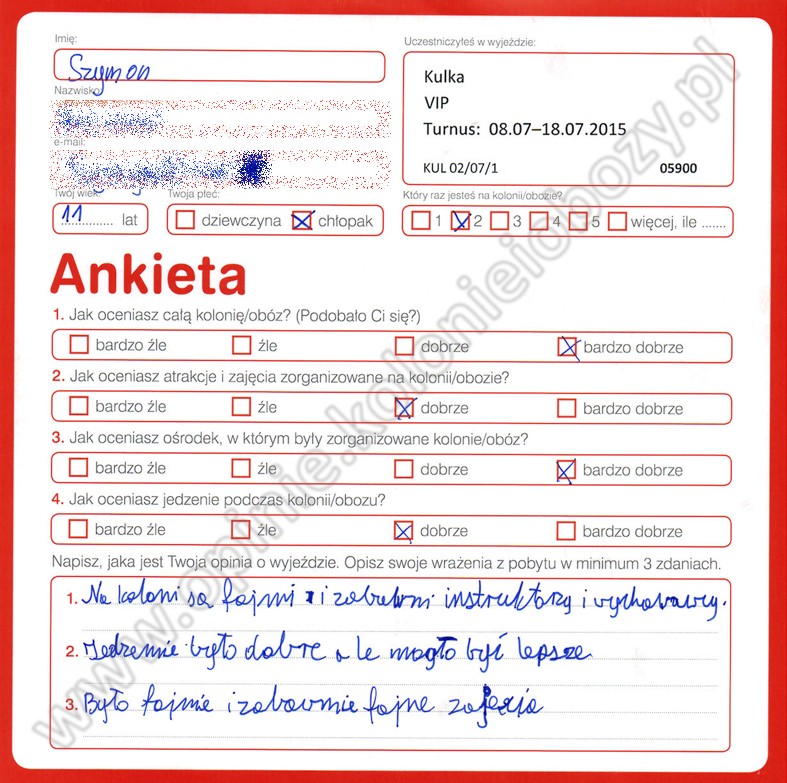 Imię:
Szymon
Nazwisko
e-mail:
Twój wiek:
11 lat
Twoja płeć:
dziewczyna chłopak
Uczestniczyłeś w wyjeździe:
Kulka
VIP
Turnus: 08.07–18.07.2015
KUL 02/07/1 05900
Który raz jesteś na kolonii/obozie?
1 2 3 4 5 więcej, ile .......
Ankieta
1. Jak oceniasz całą kolonię/obóz? (Podobało Ci się?)
bardzo źle źle dobrze bardzo dobrze
2. Jak oceniasz atrakcje i zajęcia zorganizowane na kolonii/obozie?
bardzo źle źle dobrze bardzo dobrze
3. Jak oceniasz ośrodek, w którym były zorganizowane kolonie/obóz?
bardzo źle źle dobrze bardzo dobrze
4. Jak oceniasz jedzenie podczas kolonii/obozu?
bardzo źle źle dobrze bardzo dobrze
Napisz, jaka jest Twoja opinia o wyjeździe. Opisz swoje wrażenia z pobytu w minimum 3 zdaniach.
1. Na koloni są fajni i zabawni instruktorzy i wychowawcy.
2. Jedzenie było dobre ale mogło być lepsze
3. Było fajnie i zabawnie fajne zajęcia
www.opinie.kolonieiobozy.pl